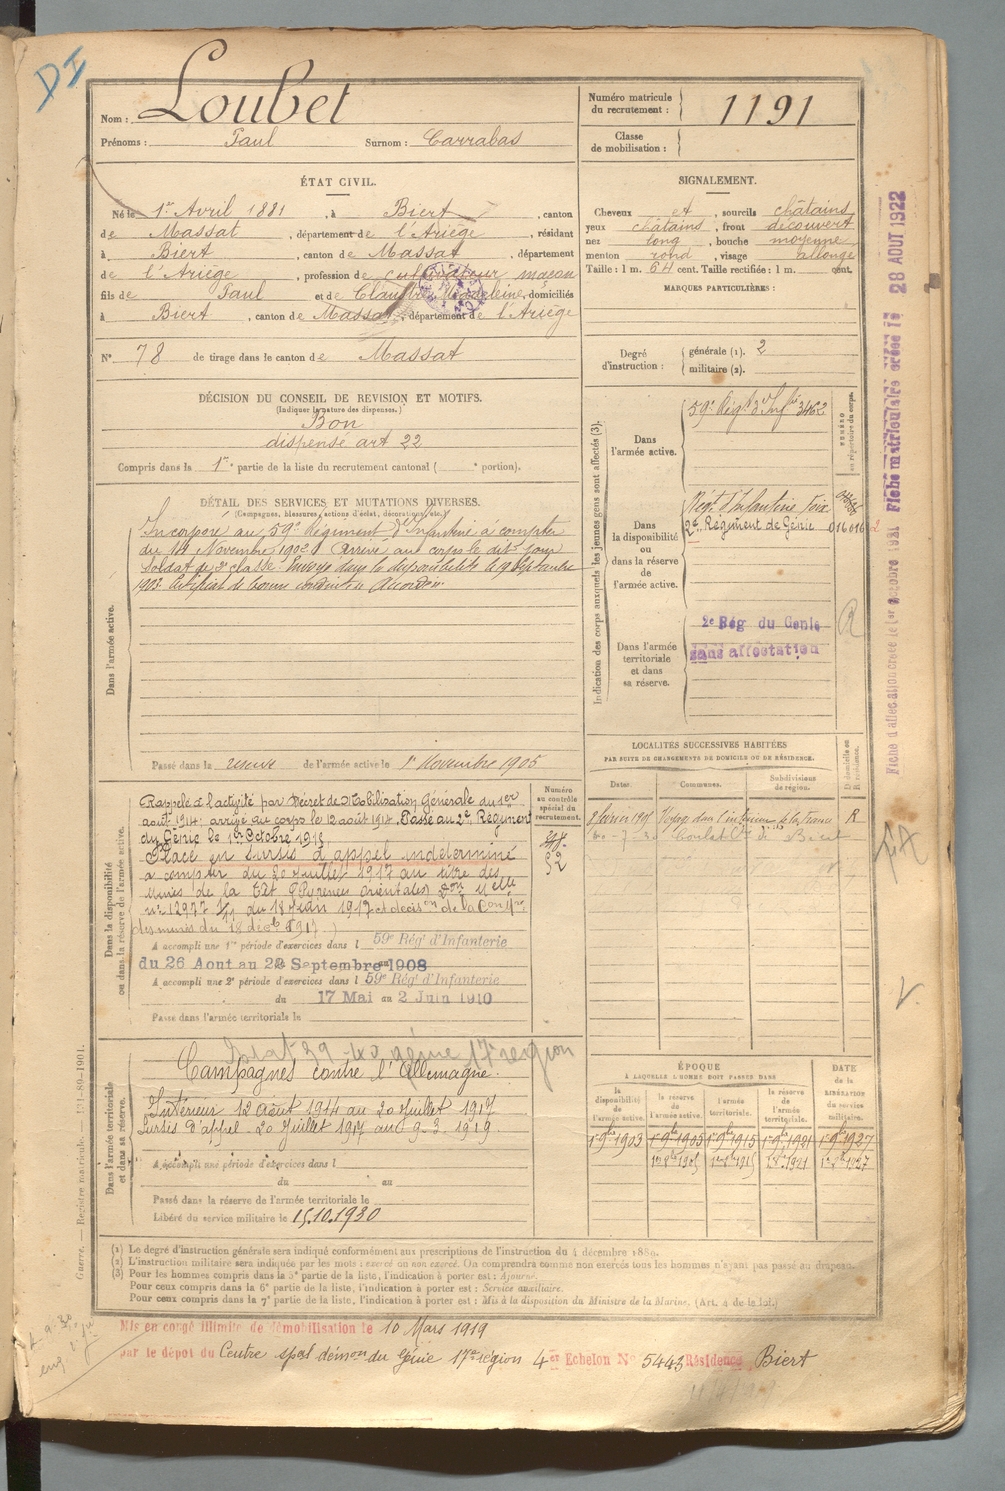 DI
Nom : Loubet
Prénoms : Paul Surnom : Carrabas
Numéro matricule du recrutement : 1191
Classe de mobilisation :
ÉTAT CIVIL.
Né le 1er Avril 1881, à Biert, canton
de Massat, département de l'Ariège, résidant
à Biert, canton de Massat, département
de l'Ariège, profession de cultivateur maçon
fils de Paul et de Claustre Madeleine, domiciliés
à Biert, canton de Massat, département de l'Ariège
N° 78 de tirage dans le canton de Massat
SIGNALEMENT.
Cheveux et, sourcils châtains
yeux châtains, front découvert
nez long, bouche moyenne
menton rond, visage allongé
Taille : 1 m. 64 cent. Taille rectifiée : 1 m. cent.
MARQUES PARTICULIÈRES :
Degré d'instruction : générale (1). 2
militaire (2).
DÉCISION DU CONSEIL DE REVISION ET MOTIFS.
(Indiquer la nature des dispenses.)
Bon
dispensé art 22
Compris dans la 1re partie de la liste du recrutement cantonal ( e portion).
DÉTAIL DES SERVICES ET MUTATIONS DIVERSES.
(Campagnes, blessures, actions d'éclat, décorations, etc.)
Dans l'armée active.
Incorporé au 59e Régiment d'Infanterie à compter
du 14 Novembre 1902. Arrivé au corps le dit jour
Soldat de 2e classe. Envoyé dans la disponibilité le 19 Septembre
1903. Certificat de bonne conduite Accordé.
Passé dans la réserve de l'armée active le 1er Novembre 1905
Indication des corps auxquels les jeunes gens sont affectés (3).
NUMÉRO au répertoire du corps.
Dans l'armée active.
59e Régt d'Infie 3462
Dans la disponibilité ou dans la réserve de l'armée active.
Régt d'Infanterie Foix
2e Régiment de Génie 016016
Dans l'armée territoriale et dans sa réserve.
2e Rég du Genie
sans affectation
R
Fiche d'affectation créée le 1er Octobre 1921 Fiche matriculaire créée le 28 AOUT 1922
LOCALITÉS SUCCESSIVES HABITÉES
PAR SUITE DE CHANGEMENTS DE DOMICILE OU DE RÉSIDENCE.
Dates. Communes. Subdivisions de région. D domicile ou R résidence.
Voyage dans l'intérieur de la France R
Biert
Dans la disponibilité ou dans la réserve de l'armée active.
Numéro au contrôle spécial du recrutement.
52
Rappelé à l'activité par Décret de Mobilisation Générale du 1er
août 1914; arrivé au corps le 12 août 1914. Passé au 2e Régiment
du Génie le 1er Octobre 1915
Placé en sursis d'appel indéterminé
à compter du 20 Juillet 1917 au titre des
Mines de la Têt (Pyrénées orientales) Don Mlle
n° 12977 1/11 du 18 Juin 1917 et
des mines du 18 décb 1917.
A accompli une 1re période d'exercices dans l 59e Régt d'Infanterie
du 26 Aout au 20 Septembre 1908
A accompli une 2e période d'exercices dans l 59e Régt d'Infanterie
du 17 Mai au 2 Juin 1910
Passé dans l'armée territoriale le
Dans l'armée territoriale et dans sa réserve.
39-40 génie 17 region
Campagnes contre l'Allemagne.
Intérieur 12 août 1914 au 20 Juillet 1917
Sursis d'appel 20 Juillet 1917 au 9.3.1919
A accompli une période d'exercices dans l
du au
Passé dans la réserve de l'armée territoriale le
Libéré du service militaire le 15.10.1930
ÉPOQUE
A LAQUELLE L'HOMME DOIT PASSER DANS
la disponibilité de l'armée active. la réserve de l'armée active. l'armée territoriale. la réserve de l'armée territoriale.
DATE de la LIBÉRATION du service militaire.
1er 9bre 1903 1er 9bre 1905 1er 9bre 1915 1er 9bre 1921 1er 9bre 1927
(1) Le degré d'instruction générale sera indiqué conformément aux prescriptions de l'instruction du 4 décembre 1889.
(2) L'instruction militaire sera indiquée par les mots : exercé ou non exercé. On comprendra comme non exercés tous les hommes n'ayant pas passé au drapeau.
(3) Pour les hommes compris dans la 5e partie de la liste, l'indication à porter est : Ajourné.
Pour ceux compris dans la 6e partie de la liste, l'indication à porter est : Service auxiliaire.
Pour ceux compris dans la 7e partie de la liste, l'indication à porter est : Mis à la disposition du Ministre de la Marine. (Art. 4 de la loi.)
Guerre. — Registre matricule. — 131-89-1901.
Mis en congé illimité de démobilisation le 10 Mars 1919
par le dépot du Centre spal démon du Génie 17e région 4er Echelon N° 5443 Résidence Biert